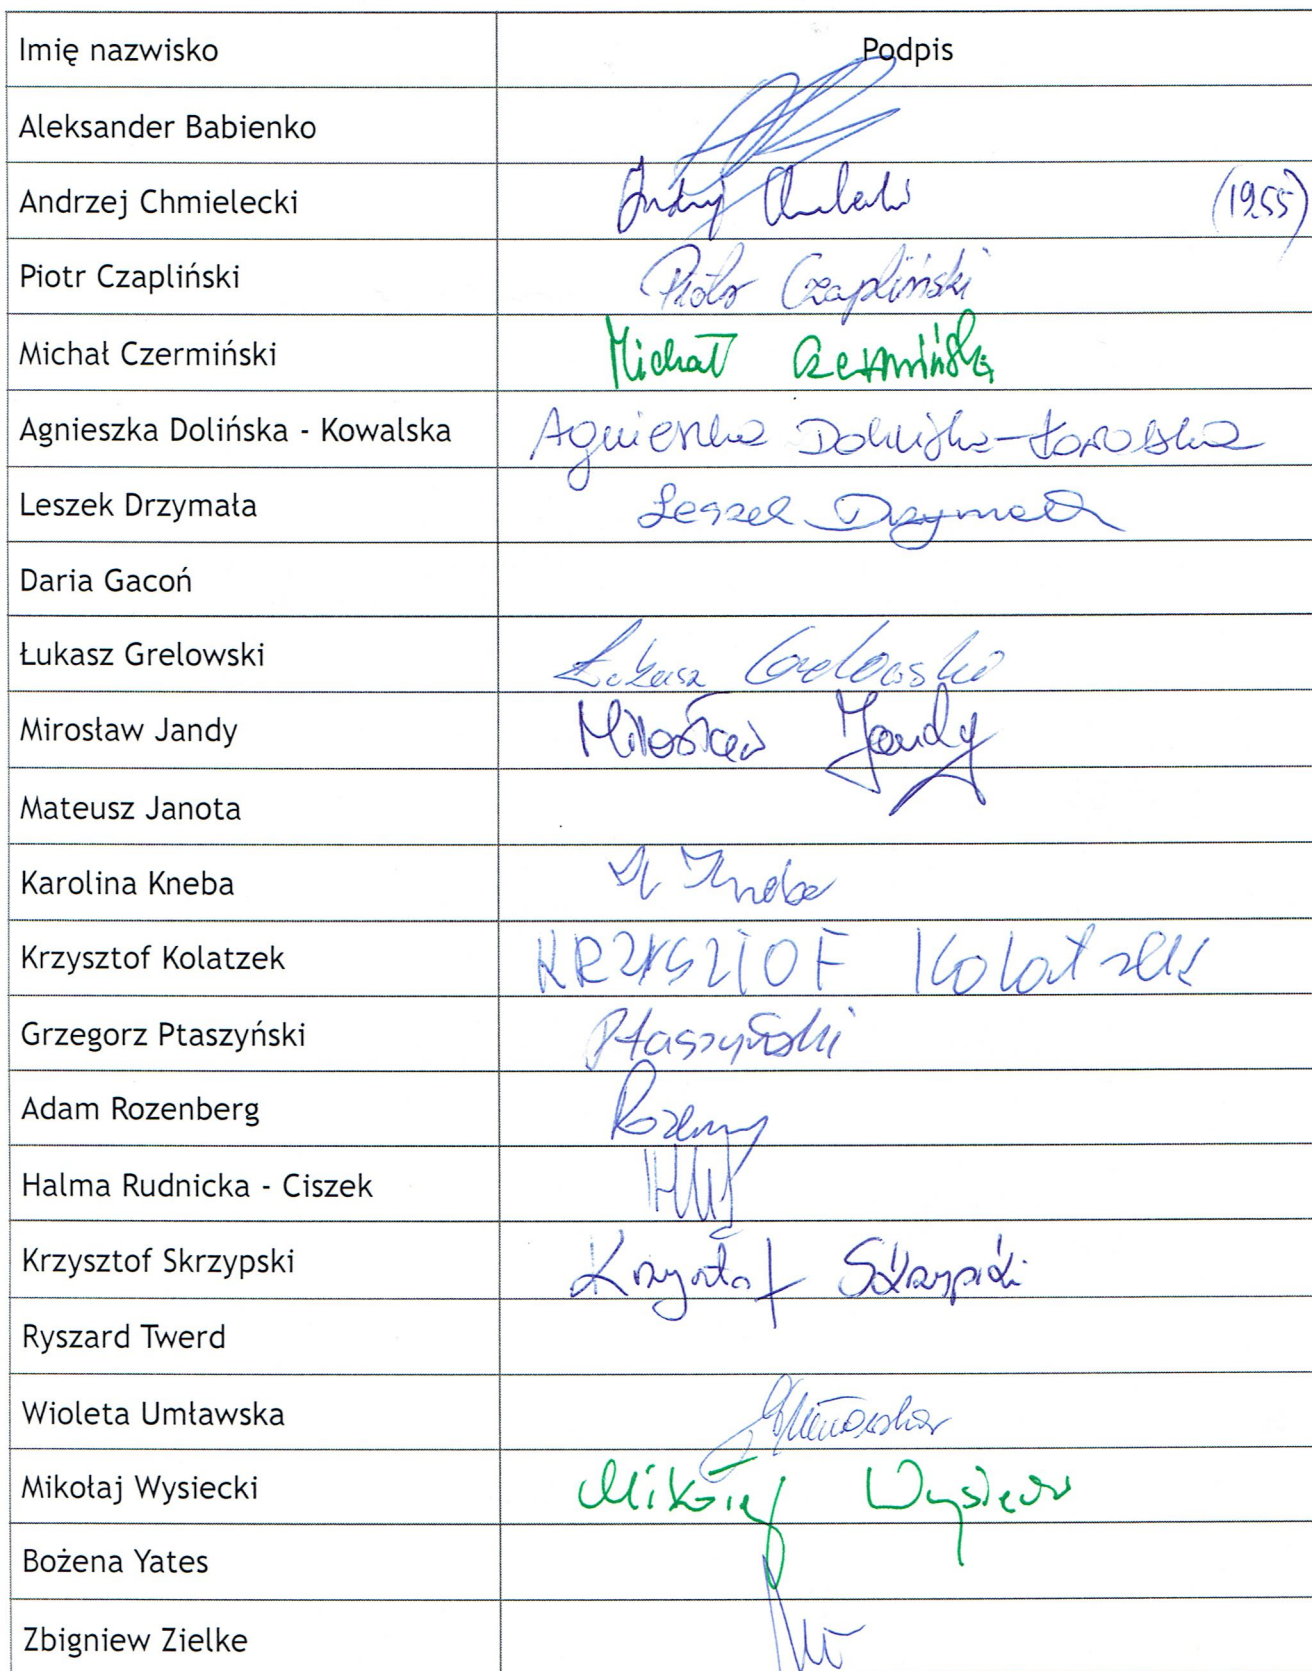 Imię nazwisko Podpis
Aleksander Babienko
Andrzej Chmielecki (1955)
Piotr Czapliński Piotr Czapliński
Michał Czermiński Michał Czermiński
Agnieszka Dolińska - Kowalska Agnieszka Dolińska-Kowalska
Leszek Drzymała Leszek Drzymała
Daria Gacoń
Łukasz Grelowski Łukasz Grelowski
Mirosław Jandy Mirosław Jandy
Mateusz Janota
Karolina Kneba K Kneba
Krzysztof Kolatzek KRZYSZTOF Kolatzek
Grzegorz Ptaszyński Ptaszyński
Adam Rozenberg
Halma Rudnicka - Ciszek
Krzysztof Skrzypski Krzysztof Skrzypski
Ryszard Twerd
Wioleta Umławska
Mikołaj Wysiecki Mikołaj Wysiecki
Bożena Yates
Zbigniew Zielke